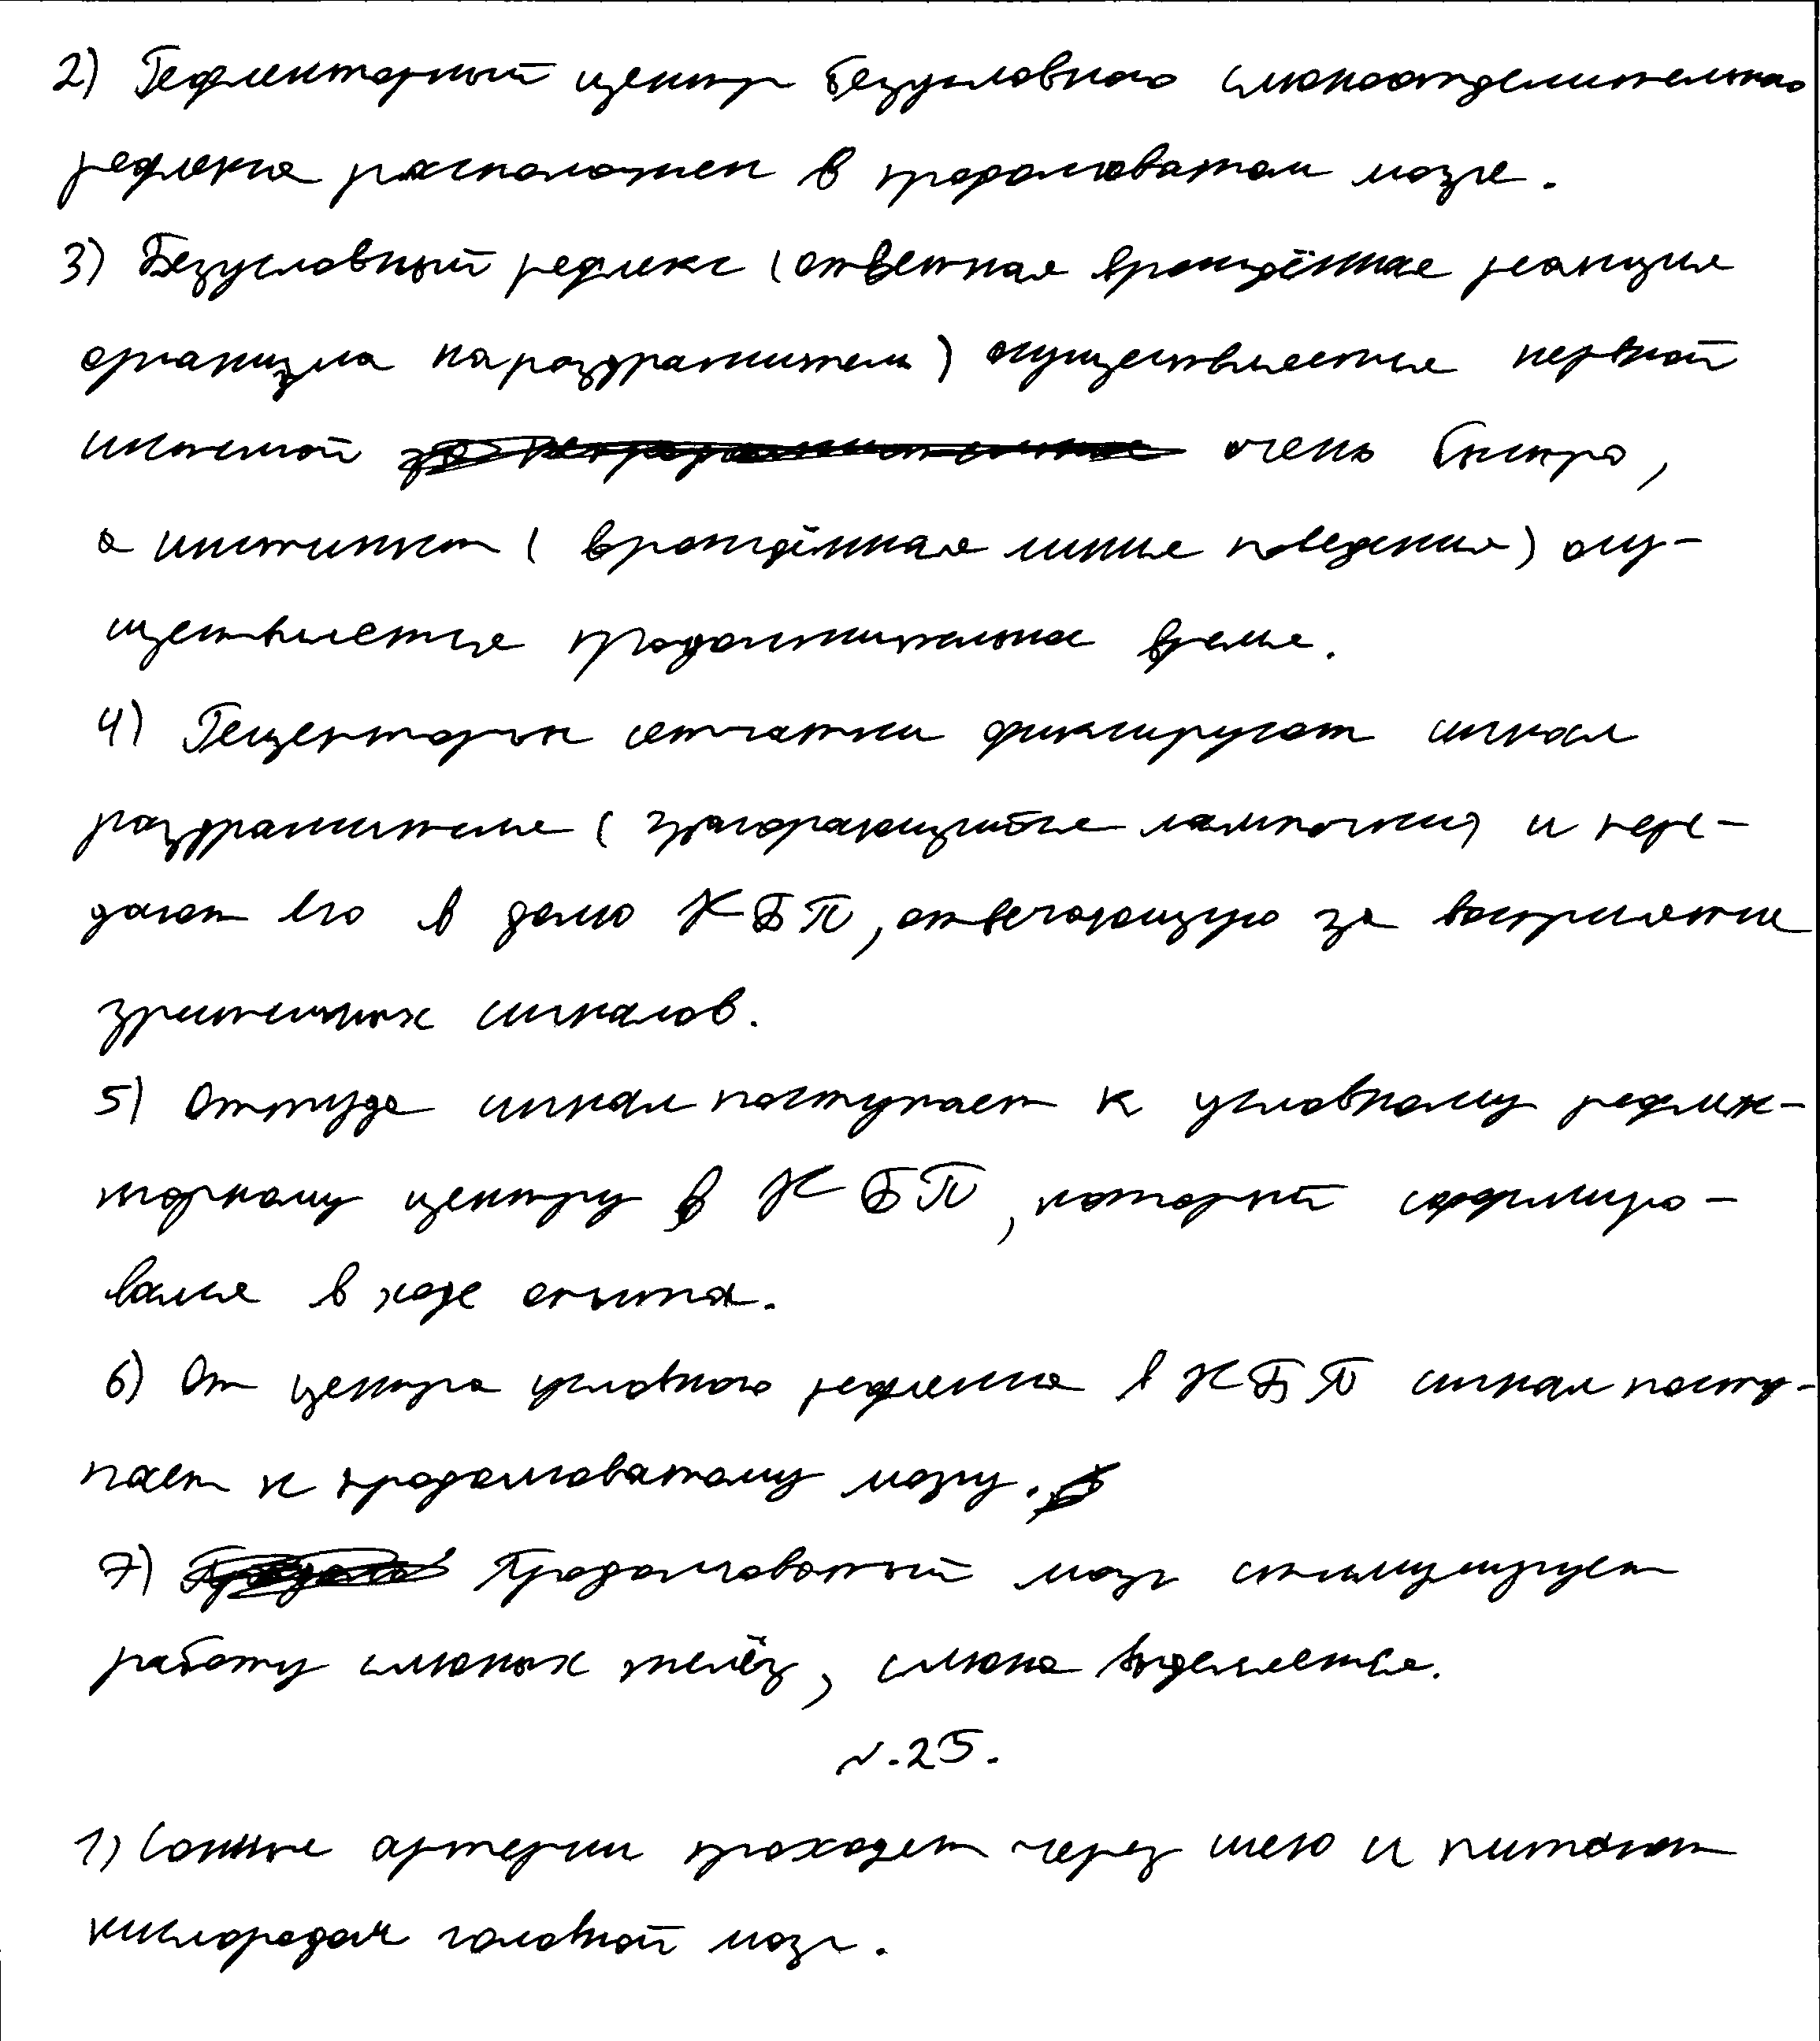 2) Рефлекторный центр безусловного слюноотделительного
рефлекса расположен в продолговатом мозге.
3) Безусловный рефлекс (ответная врождённая реакция
организма на раздражитель) осуществляется нервной
системой очень быстро,
а инстинкт (врождённая линия поведения) осу-
ществляется продолжительное время.
4) Рецепторы сетчатки фиксируют сигнал
раздражителя (загорающуюся лампочки) и пере-
дают его в долю КБП, отвечающую за восприятие
зрительных сигналов.
5) Оттуда сигнал поступает к условному рефлек-
торному центру в КБП, который сформиро-
вался в ходе опыта.
6) От центра условного рефлекса в КБП сигнал посту-
пает к продолговатому мозгу.
7) Продолговатый мозг стимулирует
работу слюных желёз, слюна выделяется.
№.25.
1) Сонные артерии проходят через шею и питают
кислородом головной мозг.